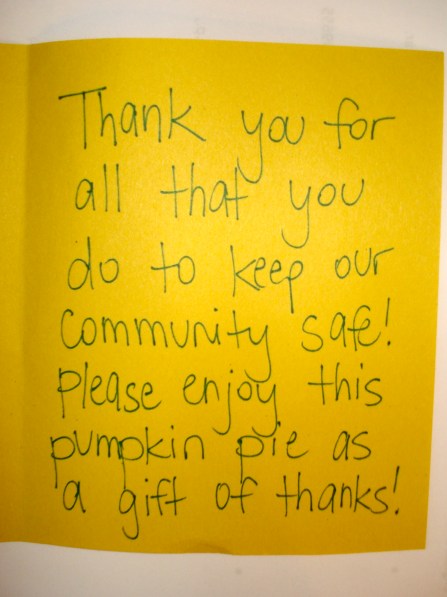 Thank you for
all that you
do to keep our
community safe!
Please enjoy this
pumpkin pie as
a gift of thanks!